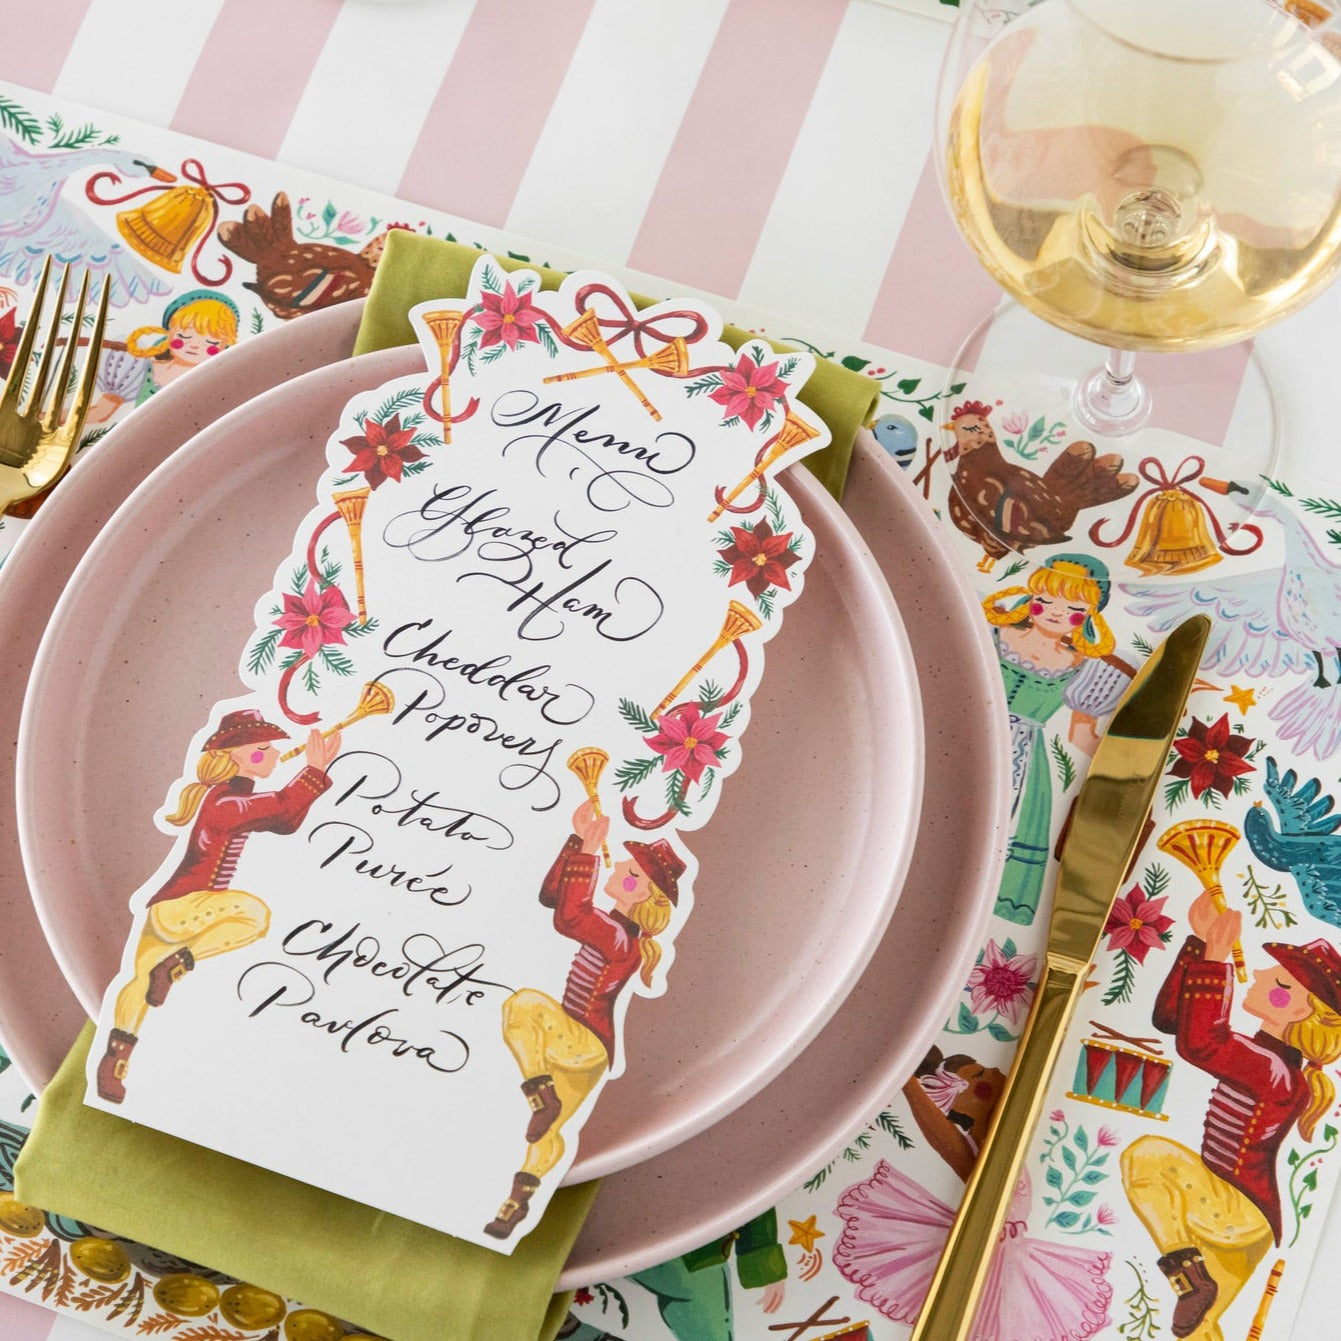 Menu
Glazed
Ham
Cheddar
Popovers
Potato
Purée
Chocolate
Pavlova